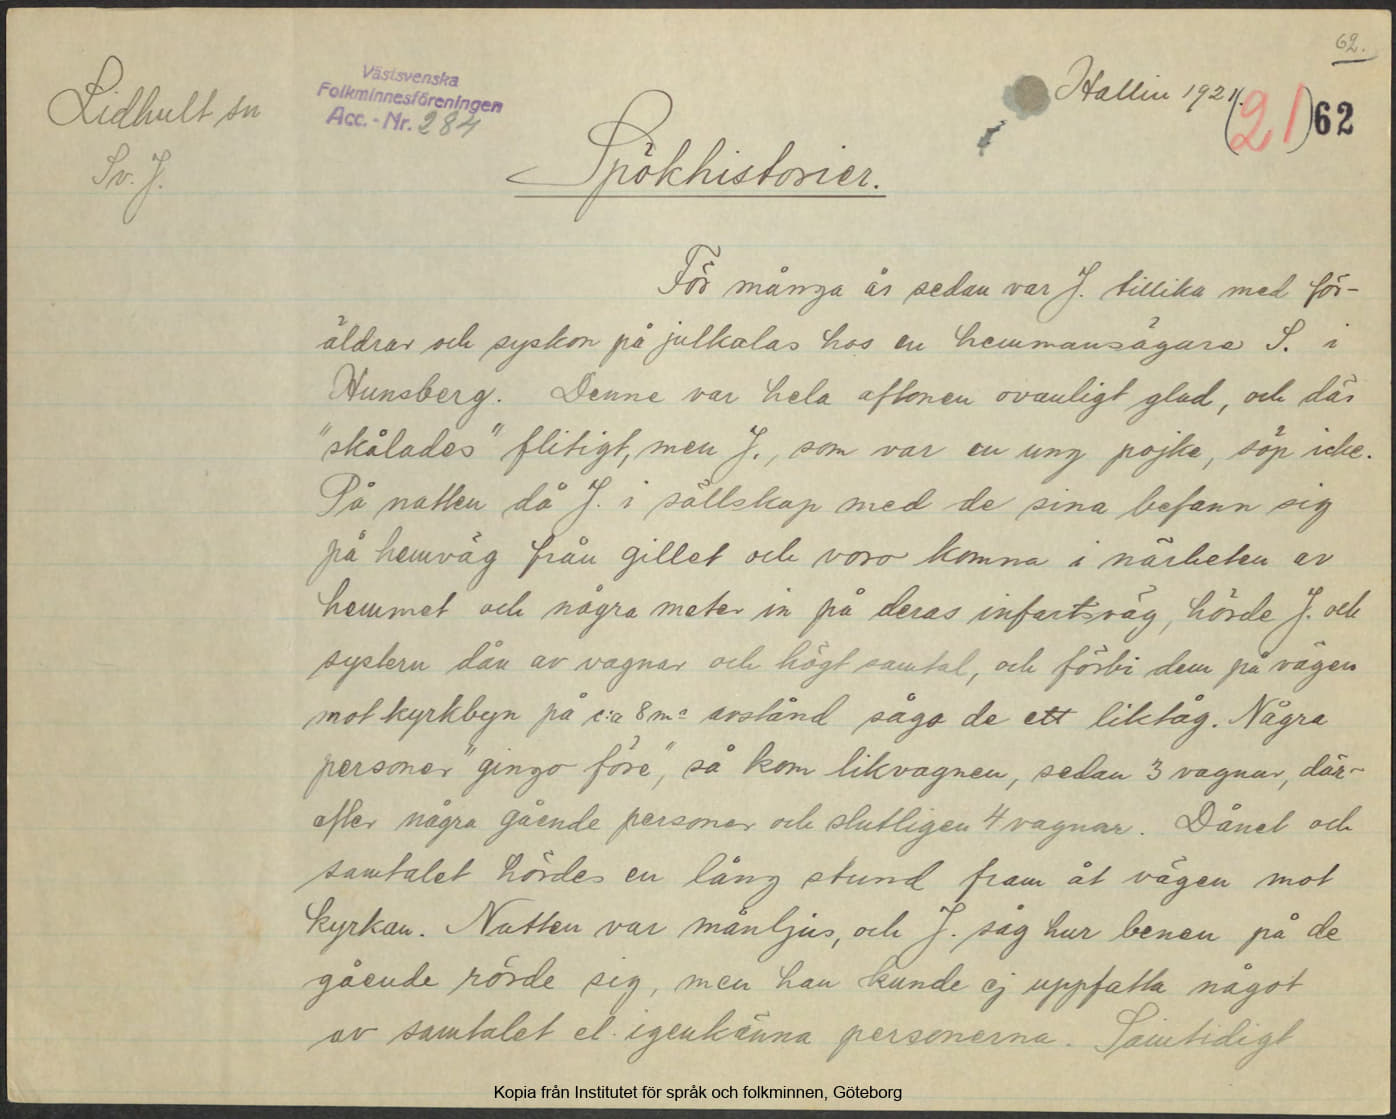 62.
Lidhult sn
Sv. J.
Västsvenska
Folkminnesföreningen
Acc. - Nr. 284
Hallin 1921.
(21) 62
Spökhistorier.
För många år sedan var J. tillika med för-
äldrar och syskon på julkalas hos en hemmansägare S. i
Hunsberg. Denne var hela aftonen ovanligt glad, och där
"skålades" flitigt, men J., som var en ung pojke, söp icke.
På natten då J. i sällskap med de sina befann sig
på hemväg från gillet och voro komna i närheten av
hemmet och några meter in på deras infartsväg, hörde J. och
systern dån av vagnar och högt samtal, och förbi dem på vägen
mot kyrkbyn på c:a 8 m:s avstånd sågo de ett liktåg. Några
personer "gingo före", så kom likvagnen, sedan 3 vagnar, där-
efter några gående personer och slutligen 4 vagnar. Dånet och
samtalet hördes en lång stund fram åt vägen mot
kyrkan. Natten var månljus, och J. såg hur benen på de
gående rörde sig, men han kunde ej uppfatta något
av samtalet el. igenkänna personerna. Samtidigt
Kopia från Institutet för språk och folkminnen, Göteborg